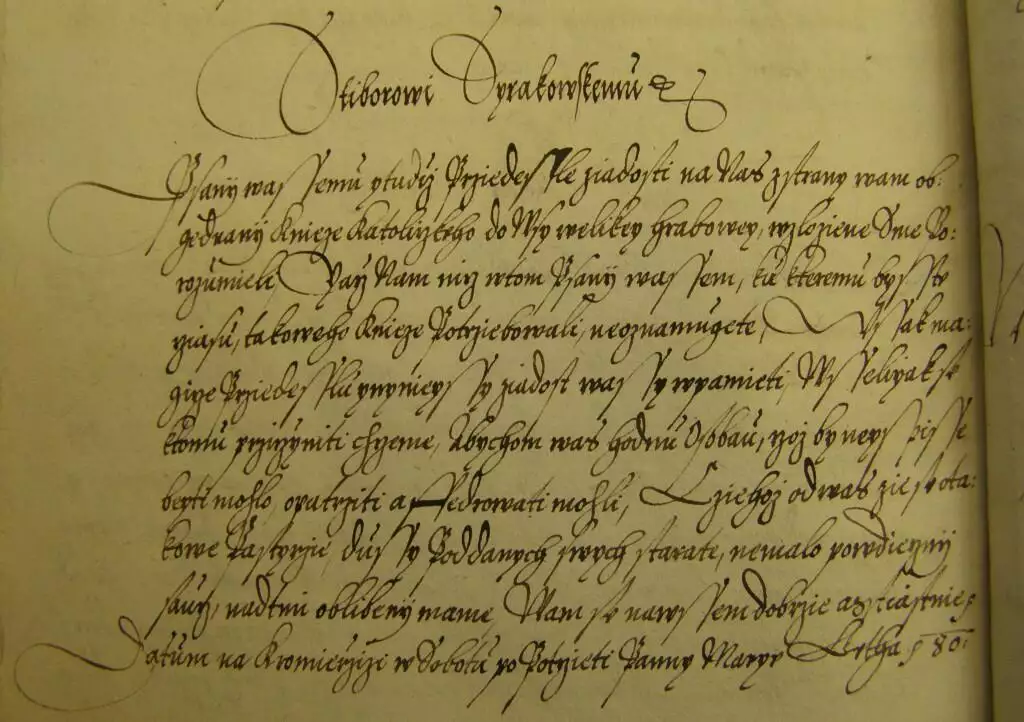 Stiborowi Syrakowskemu ꝛc
Psanij wassemu ytudiz Przedessle ziadosti na Nas zstrany wam ob:
gednanij Knieze Katolizkeho do Wsy welikey hrabowey, wzloziene Sme Po:
rozumieli, Nay Nam nicz wtom Psanij wassem, ku kteremu bysste
cziasu, takoweho Knieze Potrziebowali, neoznamugete, Wssak ma:
gicze Przedesslu ynynieyssy ziadost wassy wpamieti, Wsselijak se
ktomu prziczyniti chczeme, Abychom was hodnu Osobau, czoz by neyspisse
beyti mohlo, opatrziti a ffedrowati mohli, Cziehoz od was zie se ota:
kowe Pastyrzie, dussy Poddanych swych starate, nemalo powdieczny
saucz, nadtim oblibenij mame, Wam se nawssem dobrzie asstiastnie,
Datum na Kromierzizi w Sobotu po Potzieti Panny Maryy Letha 80.